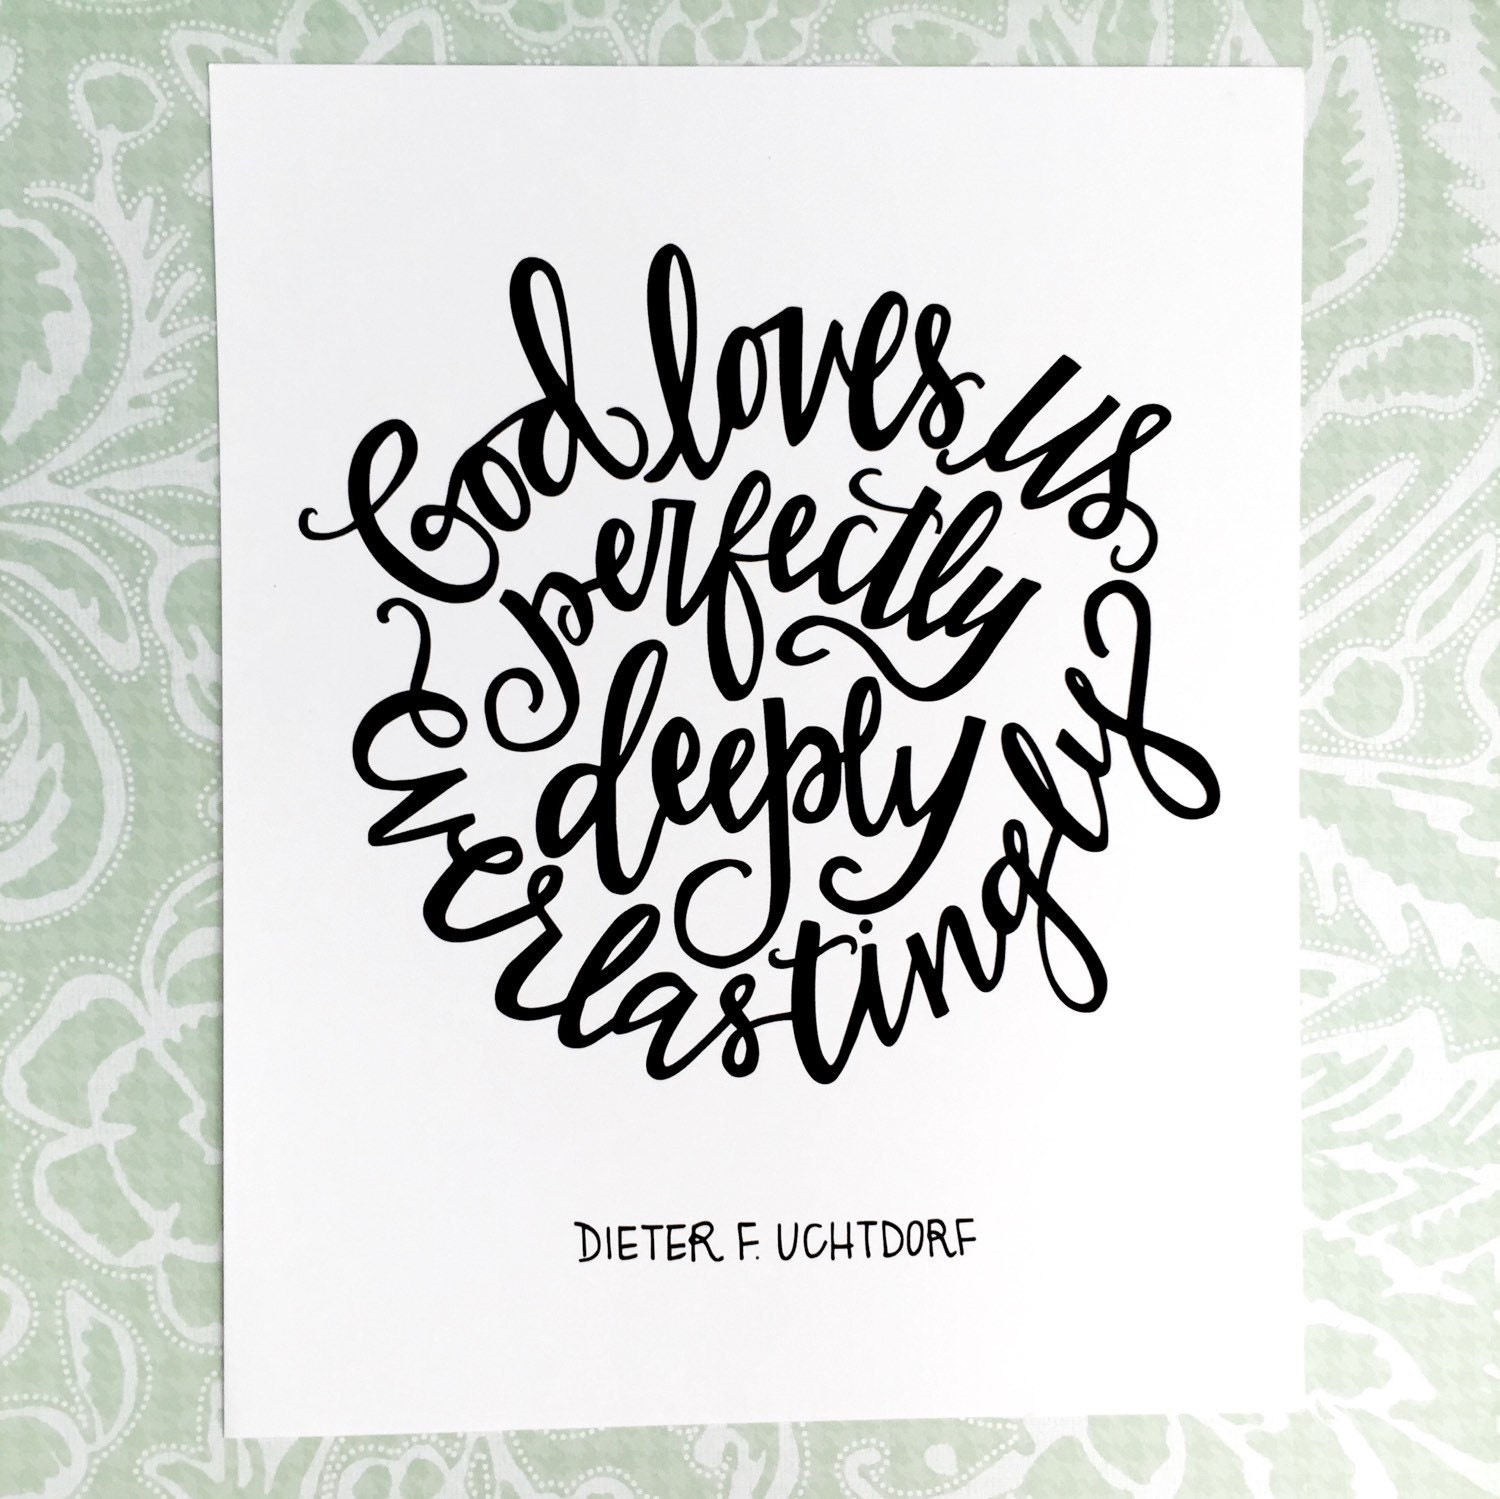 God loves us
perfectly
deeply
everlastingly
DIETER F. UCHTDORF